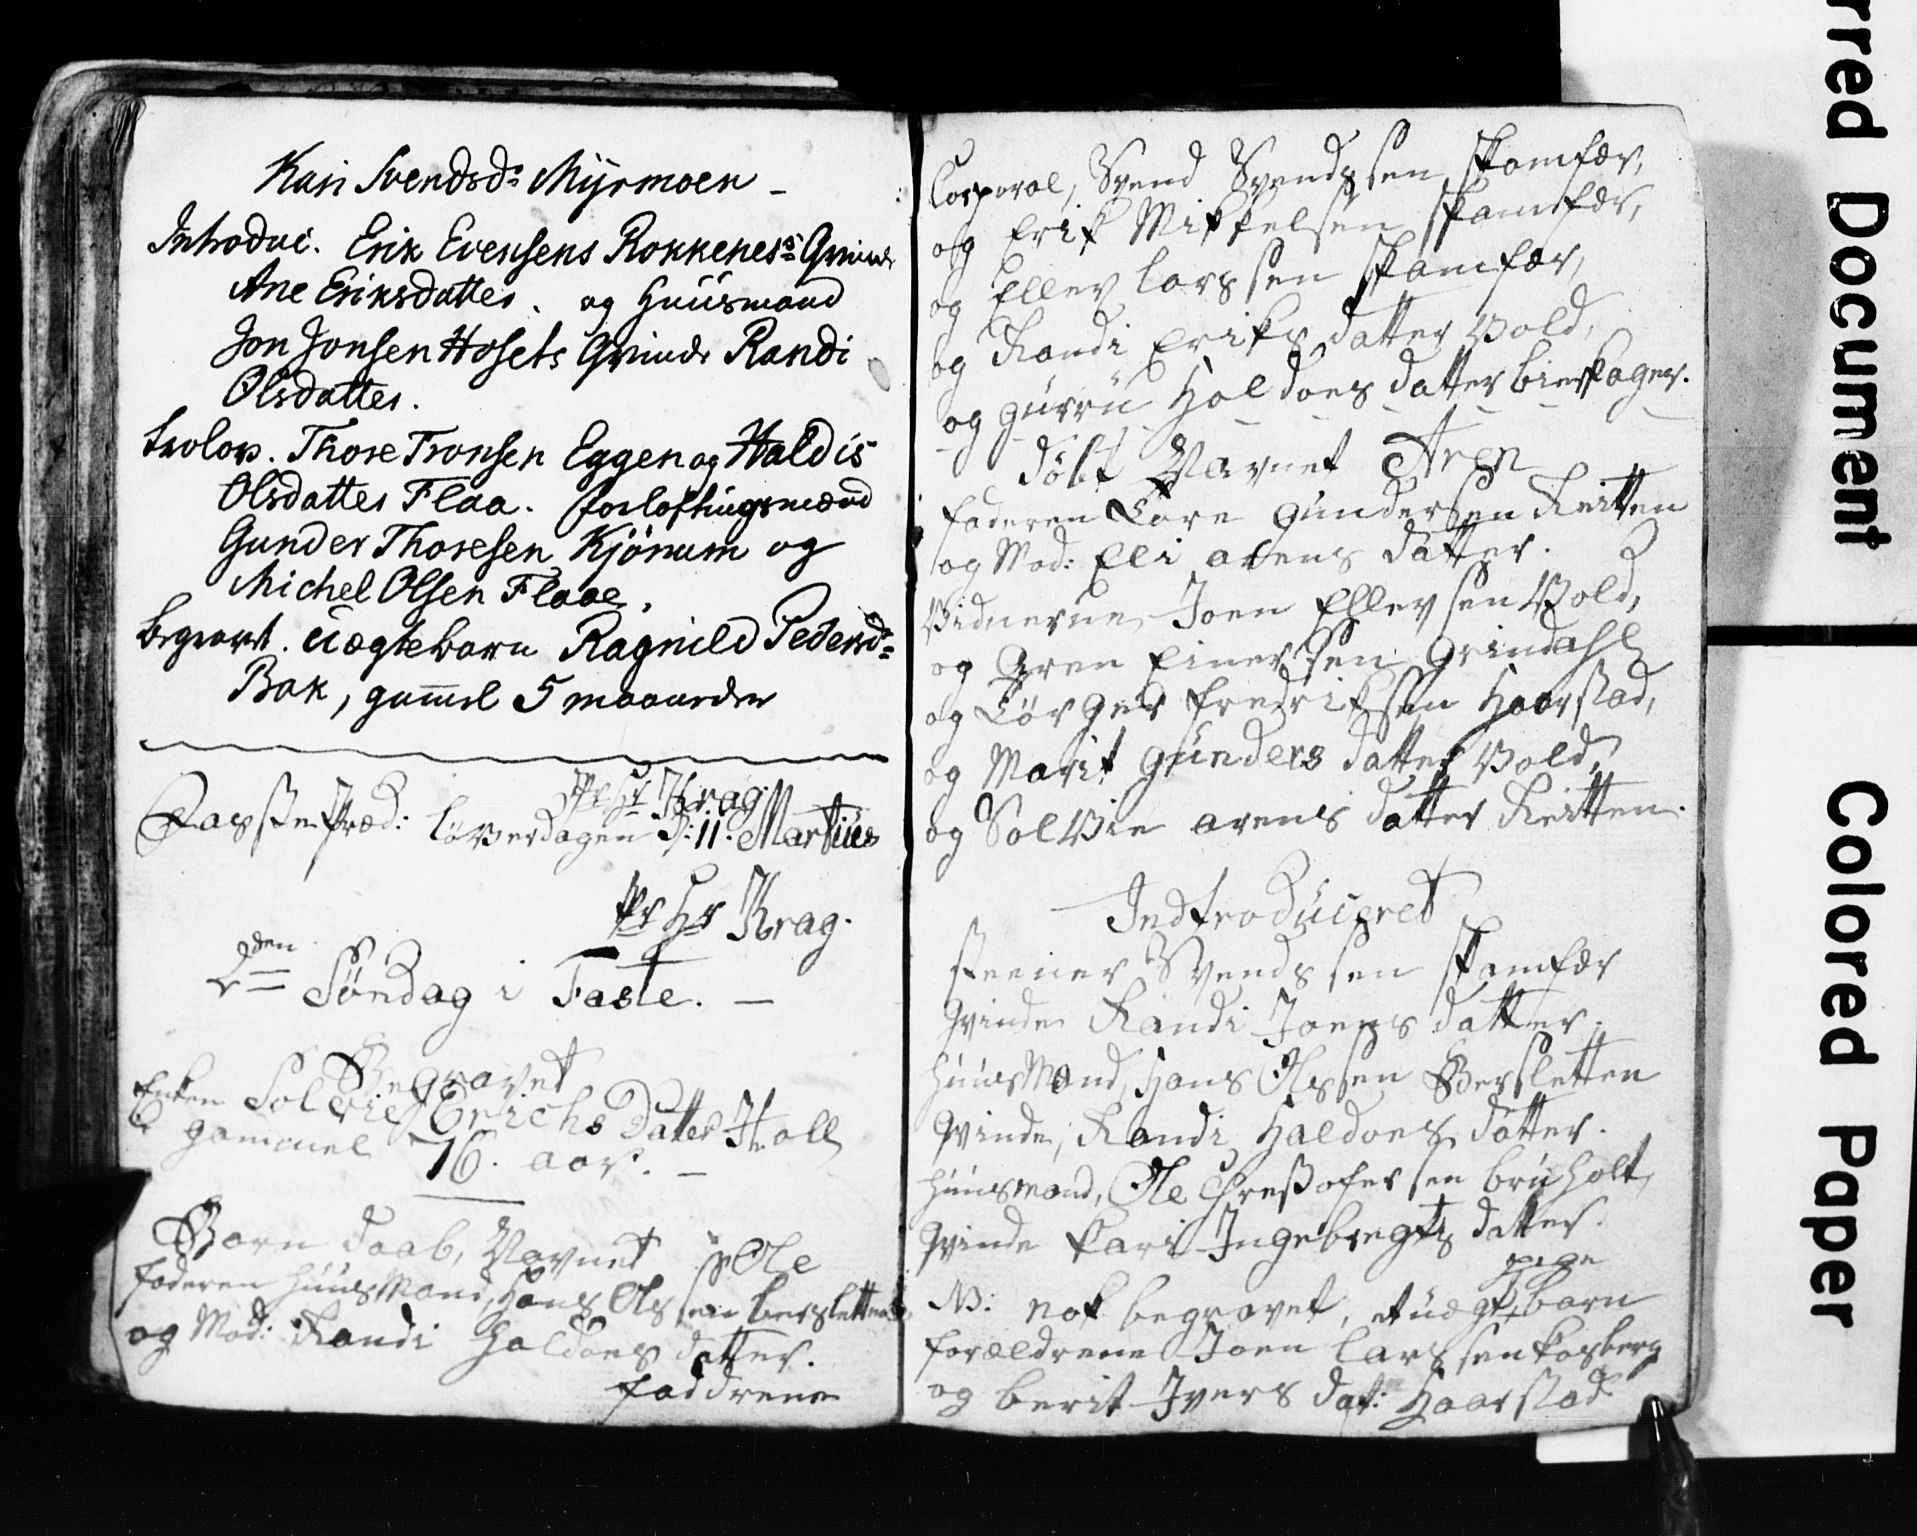 Kari Svendsd: Myrmoen -
Introduc. Erik Evensens Rokkenes's Qvinde
Ane Eriksdatter. og Huusmand
Jon Jonsen Hosets Qvinde Randi
Olsdatter.
trolov. Thore Tronsen Eggen og Haldis
Olsdatter Flaa. forloftningsmænd
Gunder Thoresen Kjönum og
Michel Olsen Flaae.
begravet. uægtebarn Ragnild Pedersd:
Bak, gam̄el 5 maaneder
Pr Hr Krag.
Passie Præd: löverdagen D: 11. Martius
Pr Hr Krag.
2den Søndag i Faste. -
Begravet
Enken Solvie Erichs Datter Holl
gammel 76. aar. -
Barn Daab, Navnet Ole
faderen huusmand, Hans Olssen berslette
og Mod: Randi Haldoes datter.
faddrene
Corporal, Svend Svendssen Skamfær,
og Erik Mikkelsen Skamfær,
og Ellev larssen Skamfær,
og Randi Eriks datter Vold,
og Guru Haldoes datter bierkager.
döbt Navnet Aren
faderen Tore Gundersen Reitten
og Mod: Eli arens datter.
Vidnerne Joen Ellevsen Vold,
og Aren Einersen Grindahl
og Törger fredrikssen Haarstad,
og Marit Gunders datter Vold,
og Solvie arens datter Reitten.
Indtroduceret
steener Svendssen Skamfær
Qvinde Randi Joens datter.
huusmand, Hans Olssen Bersletten
Qvinde, Randi Haldoes datter.
huusmand, Ole Chrestofersen bruholt,
Qvinde Kari Ingebregts datter.
pige
NB: nok begravet, et uægte barn
forældrene Joen larssen Kosberg
og berit Ivers dat: Haarstad
rred Document
Colored Paper